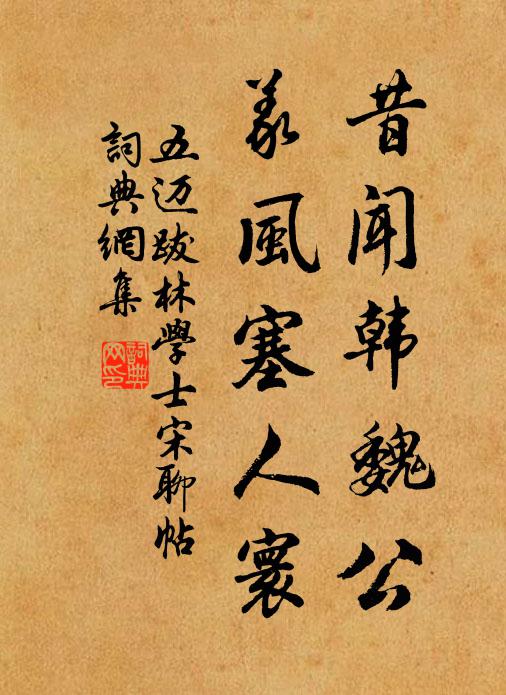 昔闻韩魏公
義風塞人寰
五迈跋林學士宋聊帖
詞典網集
詞典网印